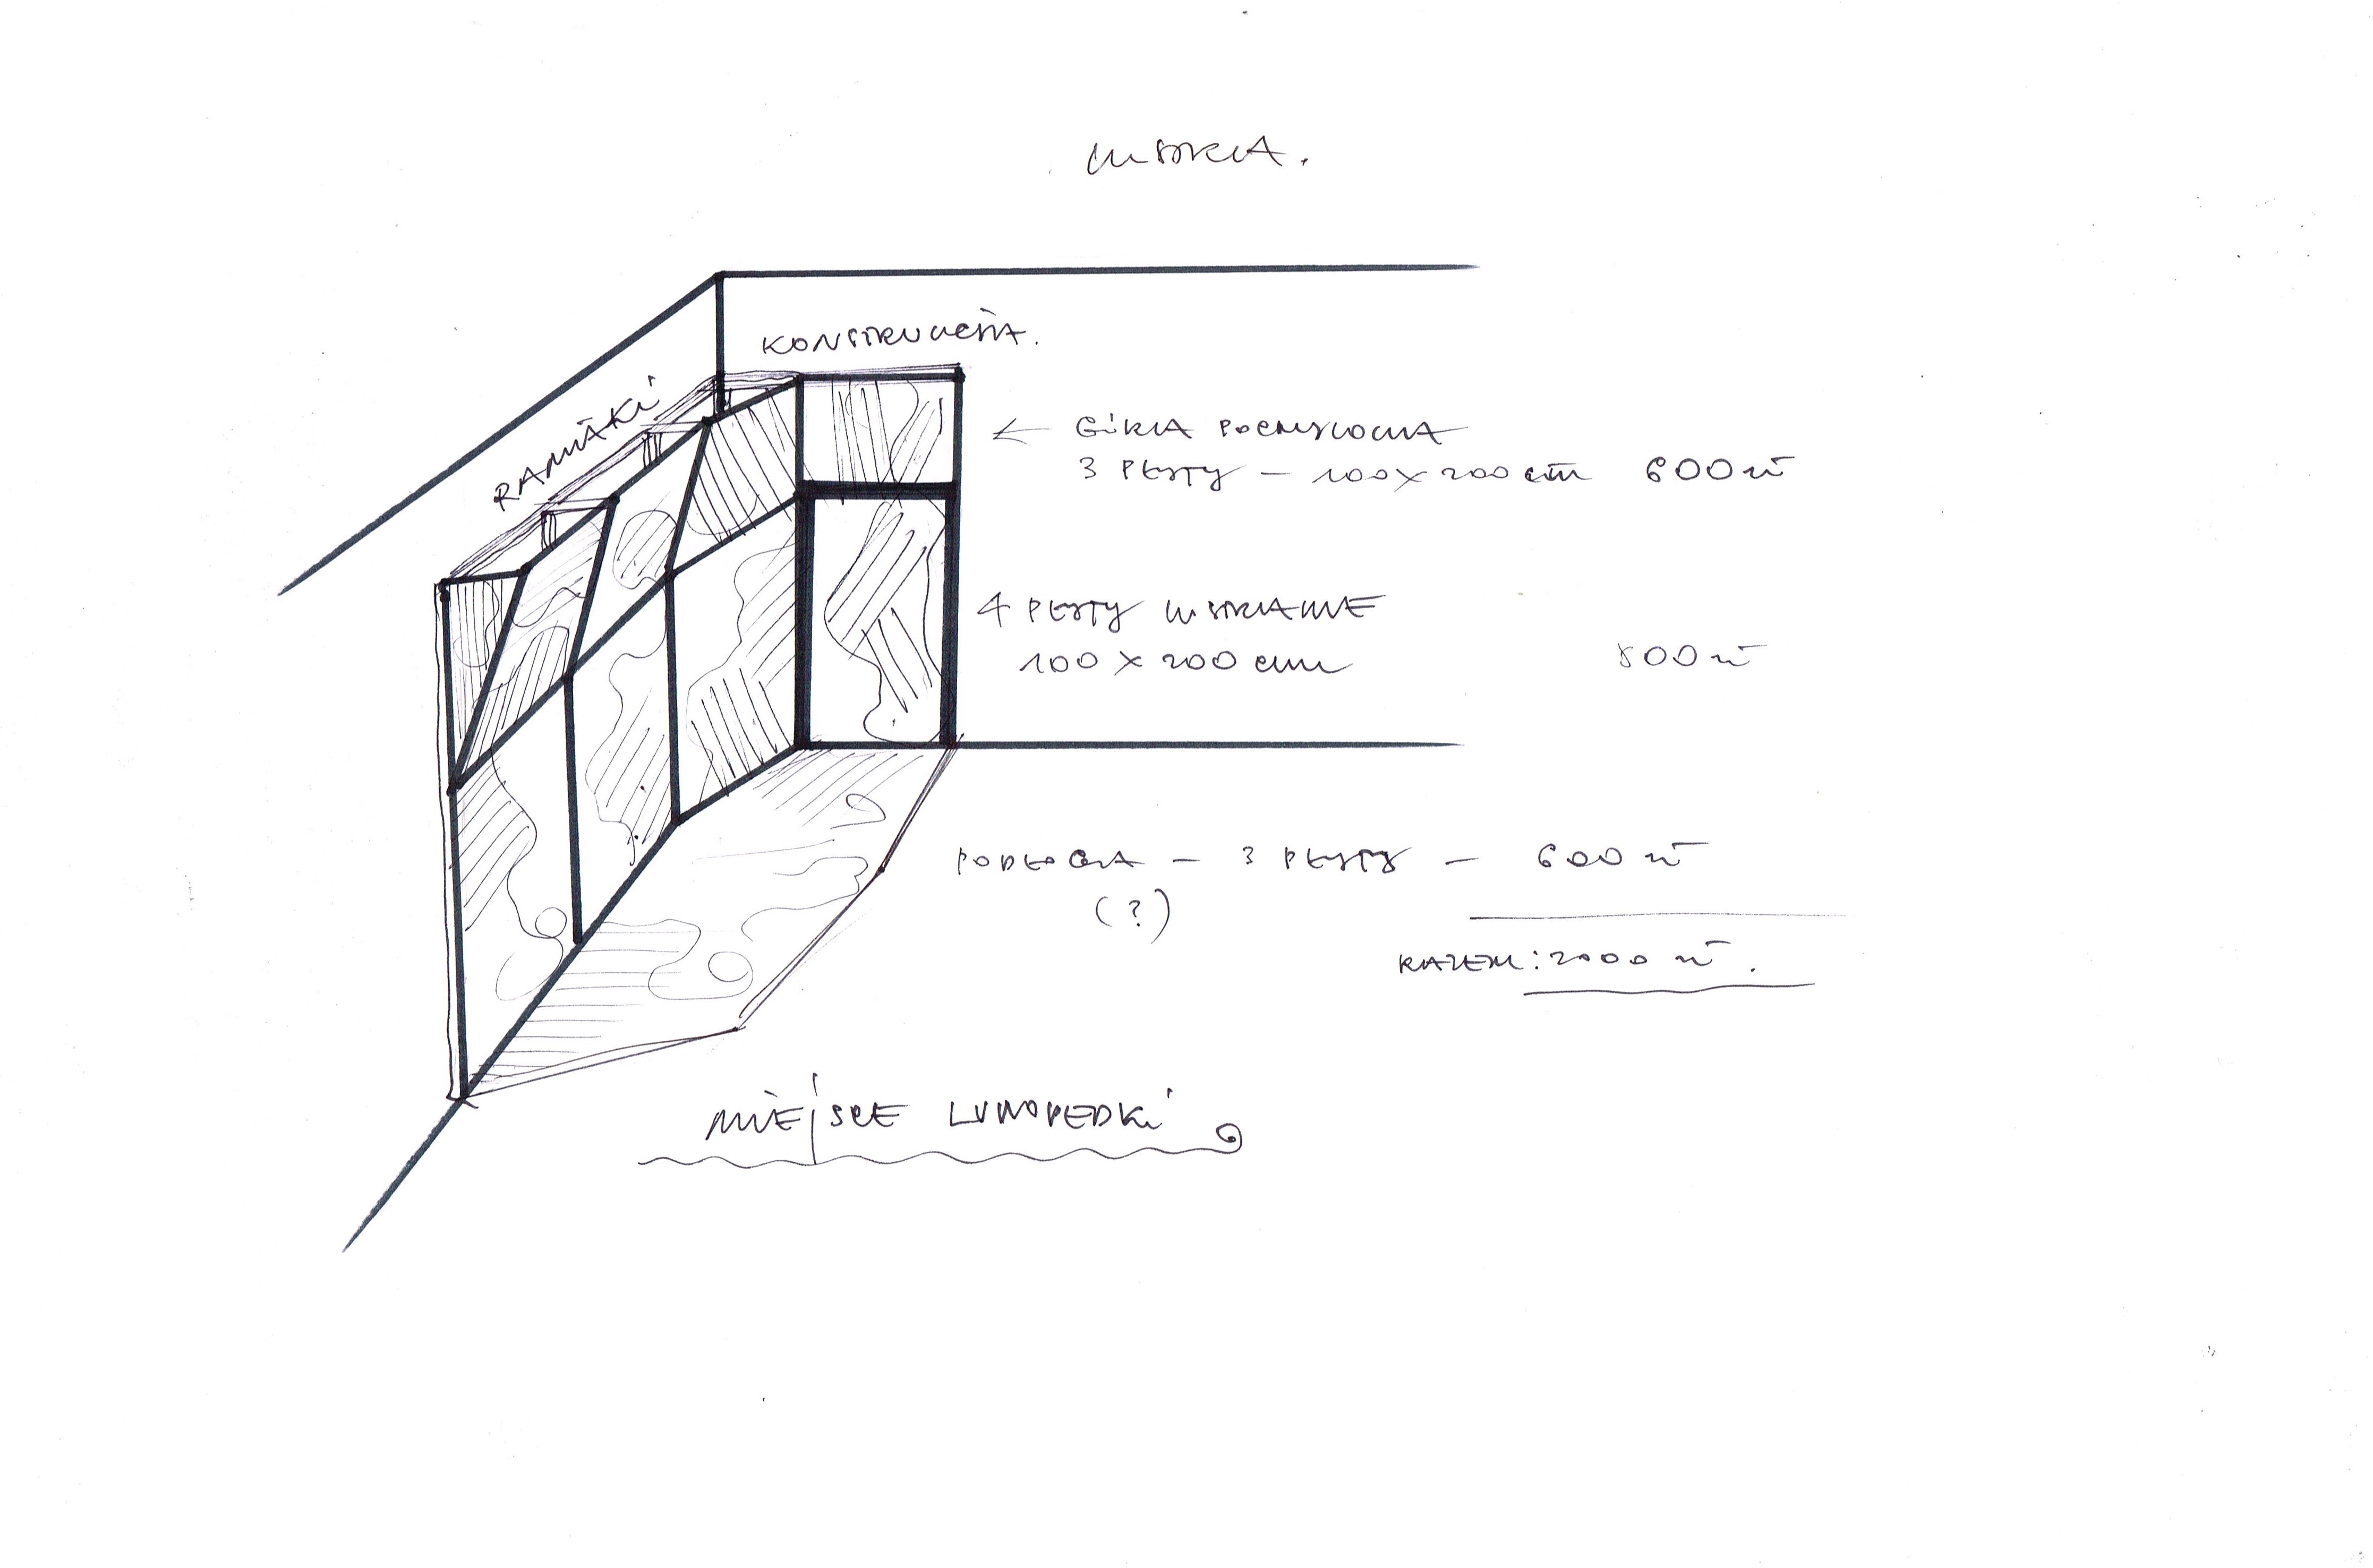 LUSTRA.
KONSTRUKCJA.
RAMIAKI
← GÓRA POCHYLONA
3 PŁYTY – 100 X 200 cm 600 zł
4 PŁYTY LUSTRZANE
100 X 200 cm 800 zł
PODŁOGA – 3 PŁYTY – 600 zł
(?)
RAZEM: 2000 zł.
MIEJSCE